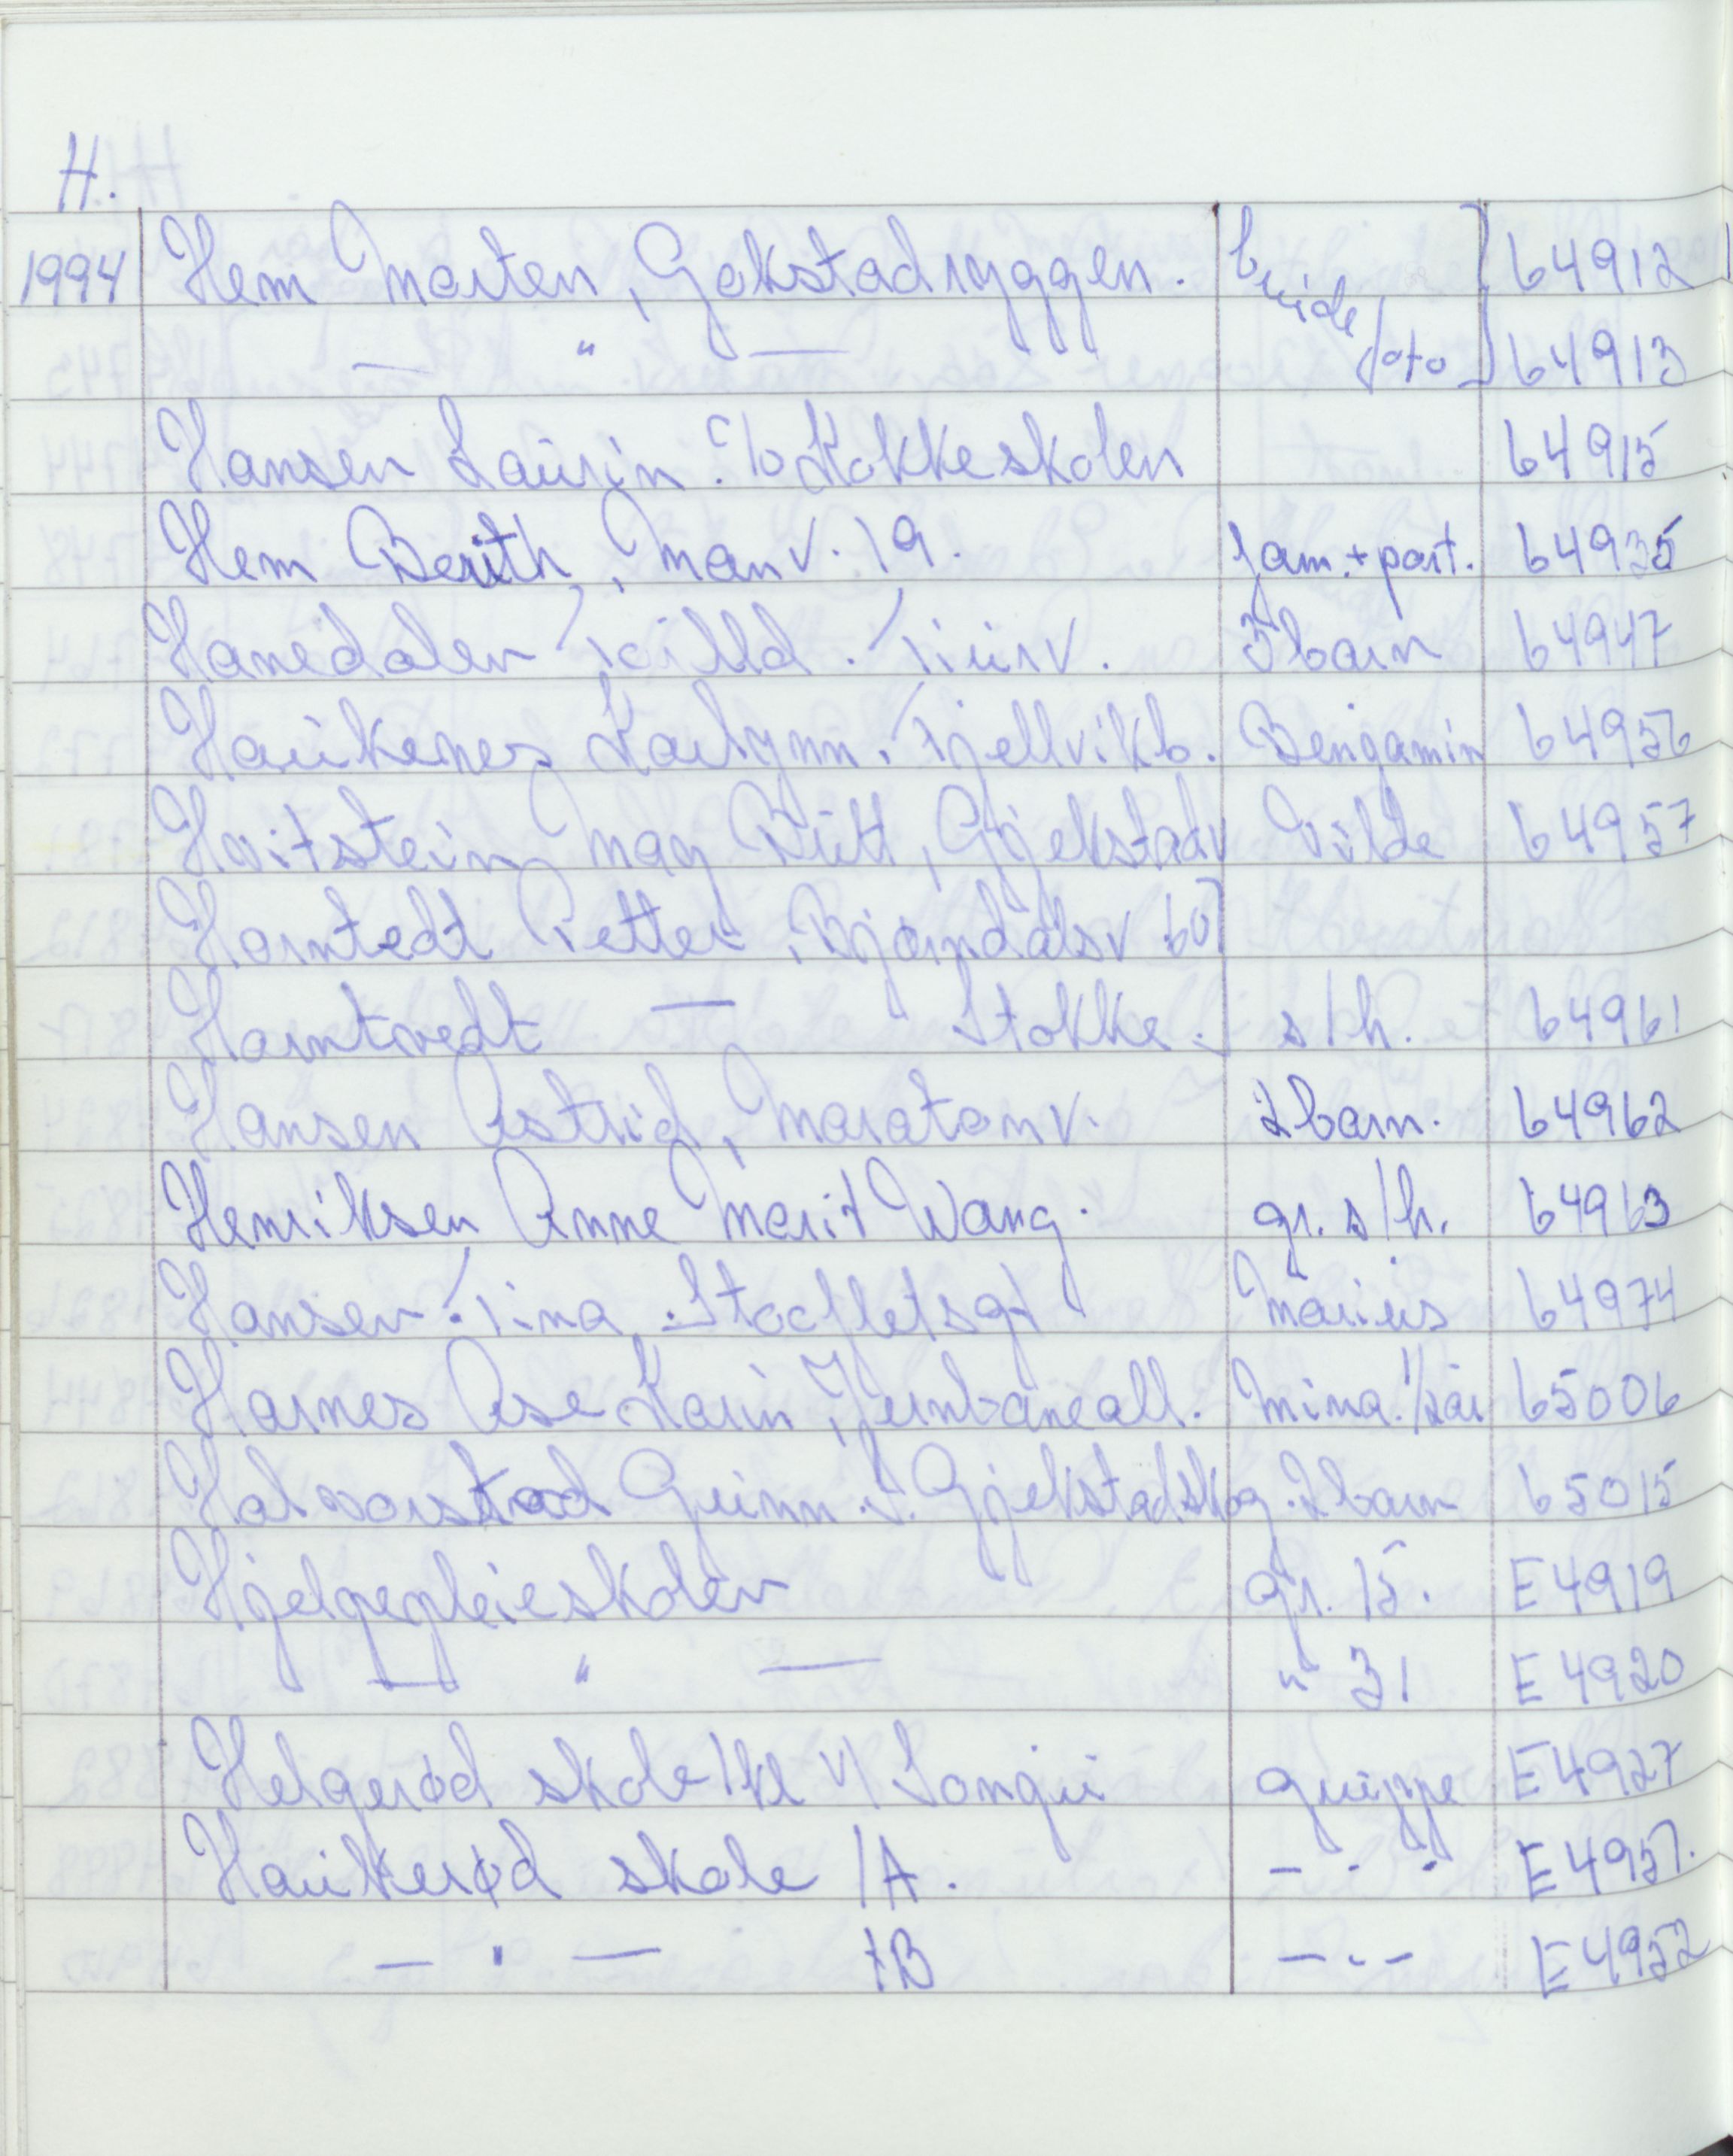 H.
1994 Hem Morten, Gokstadryggen. brude 64912
— " — foto 64913
Hansen Laurin. Stokkeskolen 64915
Hem Berith, Man v. 19. fam. + port. 64935
Hanedalen Torhild. Furuv. 3 barn 64947
Haukenes Karlynn. Fjellvikb. Benjamin 64956
Hvitstein May Britt, Gjekstadv Vilde 64957
Horntedt Petter, Bjørndalsv 60
Horntvedt — Stokke. s/h. 64961
Hansen Astrid, Maratonv. 2 barn. 64962
Henriksen Anne Marit Wang. gr. s/h. 64963
Hansen Tina, Stockfletsgt Marius 64974
Harnes Åse Karin, Jernbaneall. Mina. 1/2 år 65006
Halvorstad Gunn. v. Gjekstadskog. 2 barn 65015
Hjelpepleieskolen gr. 15. E4919
— " — " 31 E4920
Helgerød skole 1kl v/ gruppe E4927
Haukerød skole 1A. - · - E4951.
— " — 1B - · · - E4952